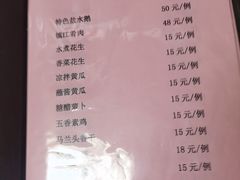 特色盐水鹅 50元/例
镇江肴肉 48元/例
水煮花生 15元/例
香菜花生 15元/例
凉拌黄瓜 15元/例
蘸酱黄瓜 15元/例
糖醋萝卜 15元/例
五香素鸡 15元/例
马兰头香干 18元/例
15元/例